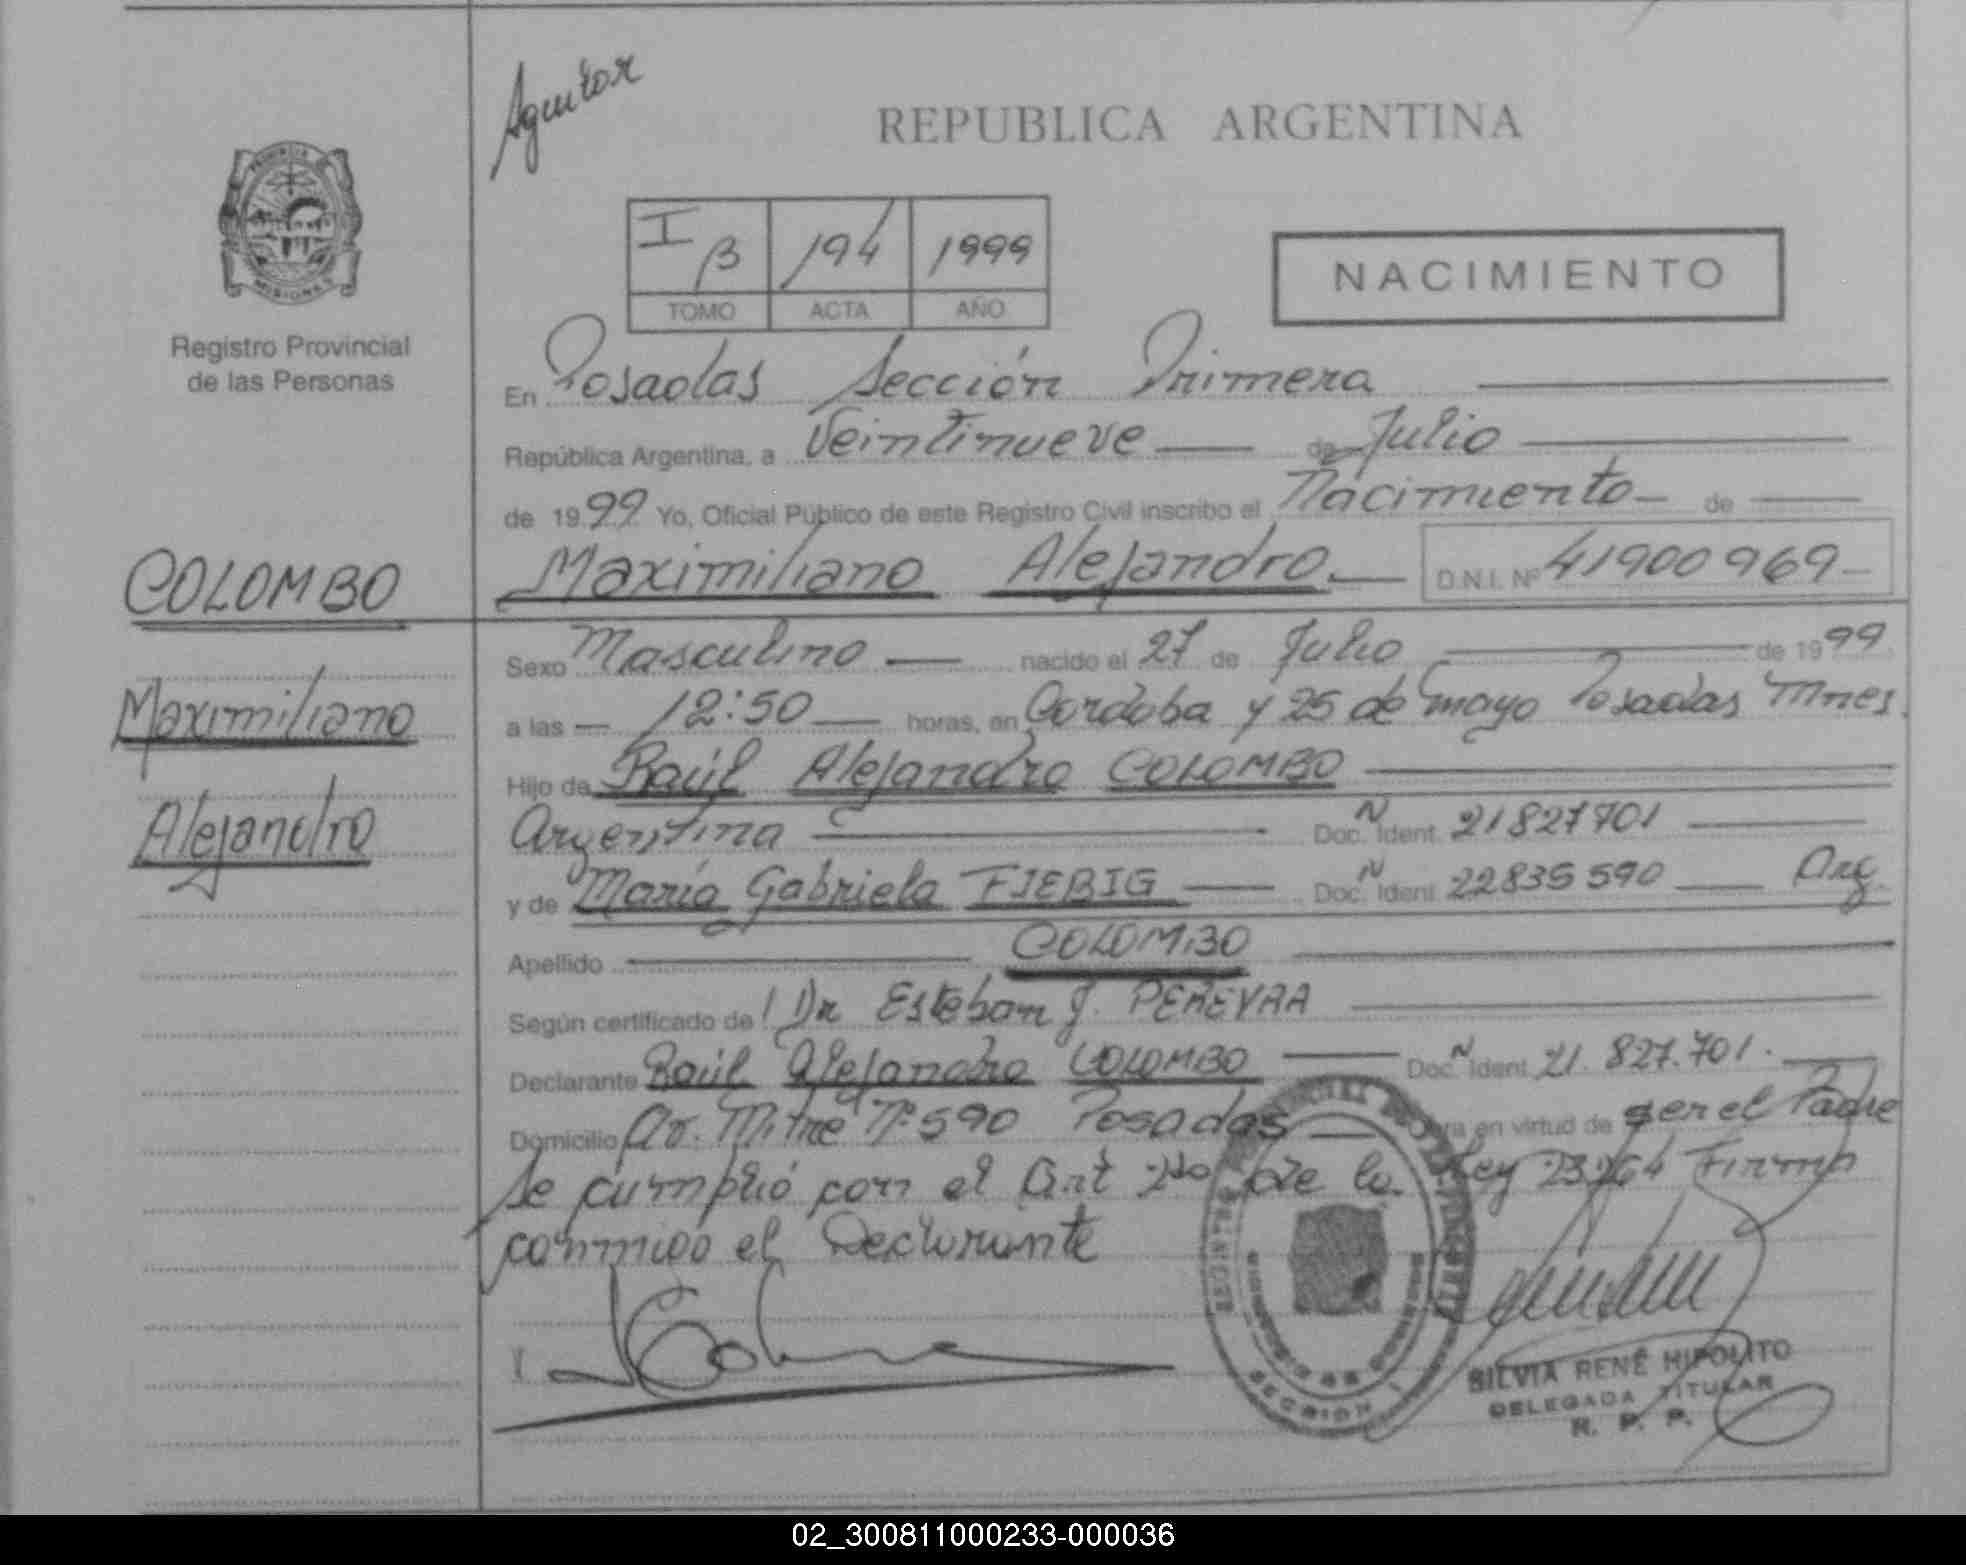 Aguilar
REPUBLICA ARGENTINA
I B 194 1999
TOMO ACTA AÑO
NACIMIENTO
PROVINCIA DE
MISIONES
Registro Provincial
de las Personas
COLOMBO
Maximiliano
Alejandro
En Posadas Sección Primera
República Argentina, a Veintinueve de Julio
de 1999 Yo, Oficial Público de este Registro Civil inscribo el Nacimiento de
Maximiliano Alejandro D.N.I. Nº 41900969
Sexo Masculino nacido el 27 de Julio de 1999
a las 12:50 horas, en Cordoba y 25 de mayo Posadas Mnes.
Hijo de Raúl Alejandro COLOMBO
Argentina Doc. N Ident. 21827701
y de María Gabriela FIEBIG Doc. N Ident. 22835590 Arg.
Apellido COLOMBO
Según certificado de Dr Esteban J. PEREYRA
Declarante Raúl Alejandro COLOMBO Doc. N Ident. 21.827.701.
Domicilio Av. Mitre Nº 590 Posadas Obra en virtud de ser el Padre
Se cumplió con el Art 2do de la Ley 23264 Firma
conmigo el Declarante
SECCION
SILVIA RENÉ HIPOLITO
DELEGADA TITULAR
R. P. P.
02_300811000233-000036